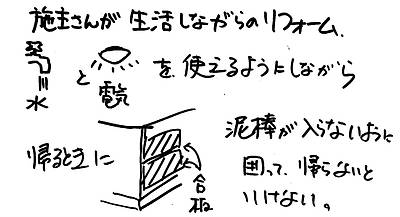 施主さんが生活しながらのリフォーム、
水 と 電気 を使えるようにしながら
帰るときに
合板
泥棒が入らないように
囲って、帰らないと
いけない。